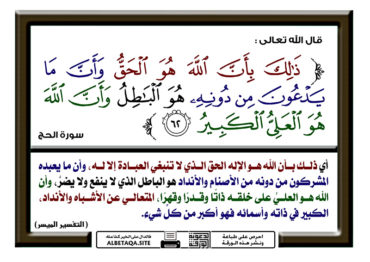 قال الله تعالى :
ذَٰلِكَ بِأَنَّ ٱللَّهَ هُوَ ٱلْحَقُّ وَأَنَّ مَا
يَدْعُونَ مِن دُونِهِۦ هُوَ ٱلْبَٰطِلُ وَأَنَّ ٱللَّهَ
هُوَ ٱلْعَلِيُّ ٱلْكَبِيرُ ٦٢
سورة الحج
أي ذلك بأن الله هو الإله الحق الذي لا تنبغي العبادة إلا له، وأن ما يعبده
المشركون من دونه من الأصنام والأنداد هو الباطل الذي لا ينفع ولا يضر، وأن
الله هو العليّ على خلقه ذاتًا وقدرًا وقهرًا، المتعالي عن الأشباه والأنداد،
الكبير في ذاته وأسمائه فهو أكبر من كل شيء.
( التفسير الميسر )
احرص على طباعة
ونشر هذه الورقة
ALBETAQA.SITE